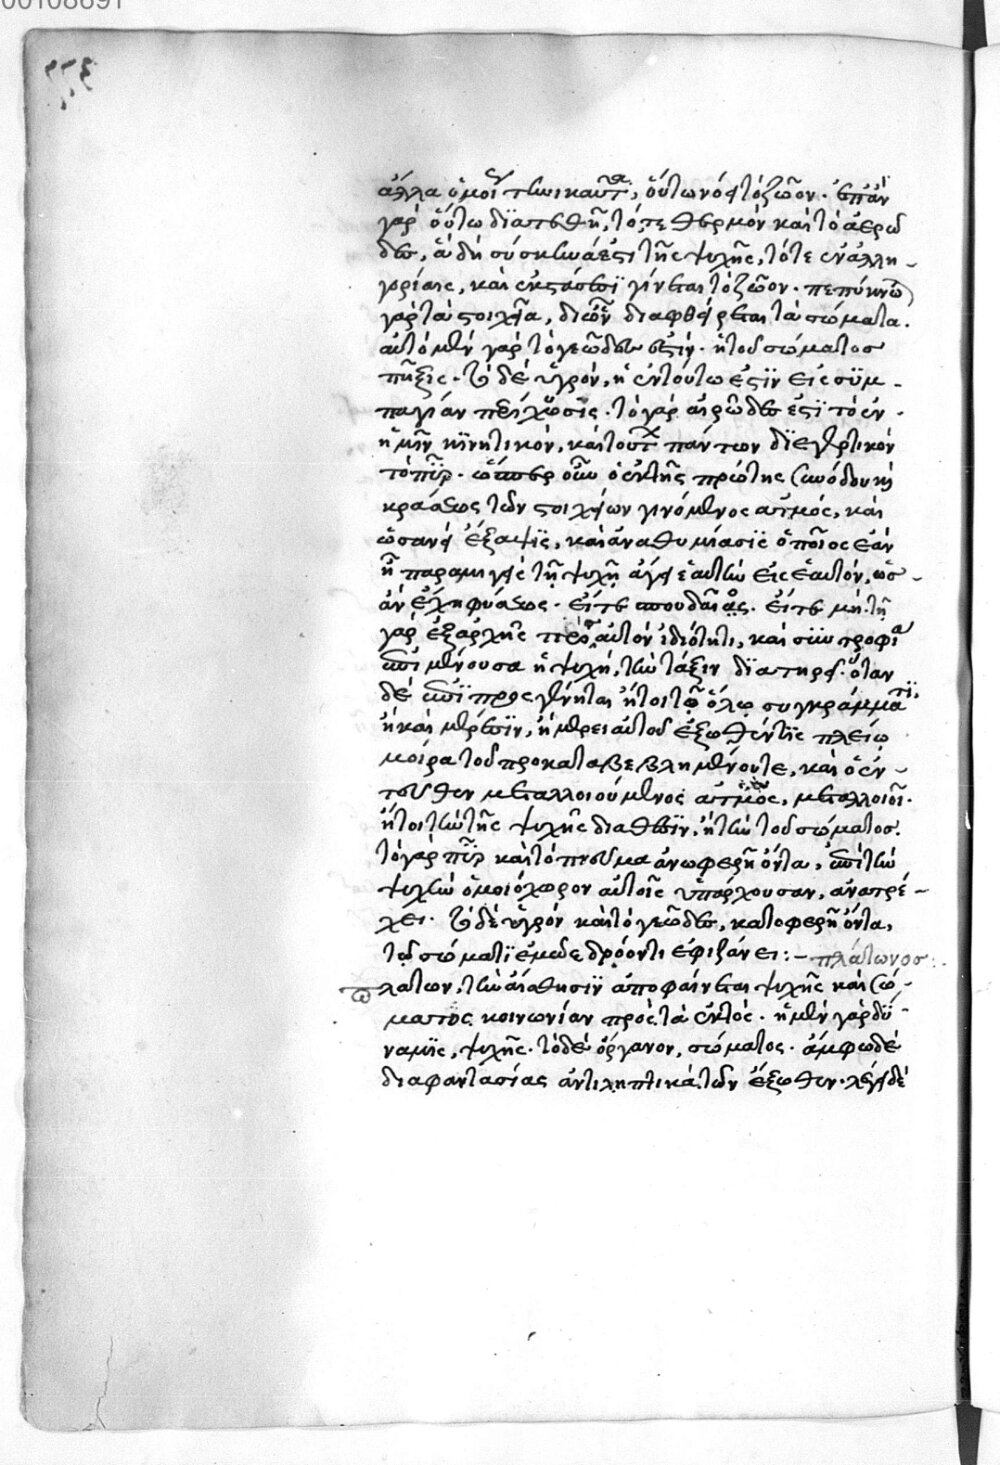 ἀλλα ὁμοῦ τῶι καυτ, οὕτω νοεῖ τὸ ζῶον. ἐπὰν
γαρ οὕτω διατεθῆ, τό, τε θερμὸν καὶ τὸ ἀερῶ
δες, ἃ δὴ σύσκηνά ἐστι τῆς ψυχῆς, τότε ἐν ἀλλη-
γορίαις, καὶ ἐκστάσεσι γίνεται τὸ ζῶον. πεπύκνω
γαρ τὰ στοιχεῖα, δι ὧν διαφθείρεται τὰ σώματα.
αὐτὸ μὲν γαρ τὸ γεῶδες ἐστὶν. ἡ τοῦ σώματος
πῆξις. τὸ δὲ ὑγρὸν, ἡ ἐν τούτω ἐστὶν εἰς συμ-
παγίαν περίχωσις. τὸ γαρ αἰρῶδες ἐστὶ τὸ ἐν
ἡμῖν κινητικὸν, καὶ τούτ πάντων διεγερτικὸν
τὸ πῦρ. ὥσπερ οὖν ὁ ἐκ τῆς πρώτης συνόδου κὴ
κράσεως τῶν στοιχείων γινόμενος ἀτμός, καὶ
ὡσανεὶ ἔξαψις, καὶ ἀναθυμίασις ὁποῖος ἐὰν
ἦ παραμιγεὶς τῆ ψυχῆ ἄγει ἑαυτὴν εἰς ἑαυτὸν, ὡς-
ἂν ἔχη φύσεως. εἴτε σπουδαίας. εἴτε μή. τῆ
γαρ ἐξαρχῆς πρὸς αὐτὸν ἰδιότητι, καὶ συντροφία
ἐπιμένουσα ἡ ψυχὴ, τὴν τάξιν διατηρεῖ. ὅταν
δὲ ἐπιπροσγένηται ἤτοι τῶ ὅλω συγκράμματι,
ἢ καὶ μέρεσιν, ἢ μέρει αὐτοῦ ἔξωθέν τις πλείω
μοίρα τοῦ προκαταβεβλημένου τε, καὶ ὁ ἐν-
τεῦθεν μεταλλοιούμενος ἀτμὸς, μεταλλοιοῖ.
ἤτοι τὴν τῆς ψυχῆς διάθεσιν, ἢ τὴν τοῦ σώματος.
τὸ γαρ πῦρ καὶ τὸ πνεῦμα ἀνωφερῆ ὄντα, ἐπὶ τὴν
ψυχὴν ὁμοιόχωρον αὐτοῖς ὑπάρχουσαν, ἀνατρέ-
χει. τὸ δὲ ὑγρὸν καὶ τὸ γεῶδες, κατοφερῆ ὄντα,
τῶ σώματι ἐμωεδρόοντι ἐφιζάνει:– πλάτωνος:.
πλάτων, τὴν αἴσθησιν ἀποφαίνεται ψυχῆς καὶ σώ-
ματος κοινωνίαν πρὸς τὰ ἐκτός. ἡ μὲν γαρ δύ-
ναμις, ψυχῆς. τὸ δὲ ὄργανον, σώματος. ἄμφω δὲ
διαφαντασίας ἀντιληπτικὰ τῶν ἔξωθεν. λέγει δὲ